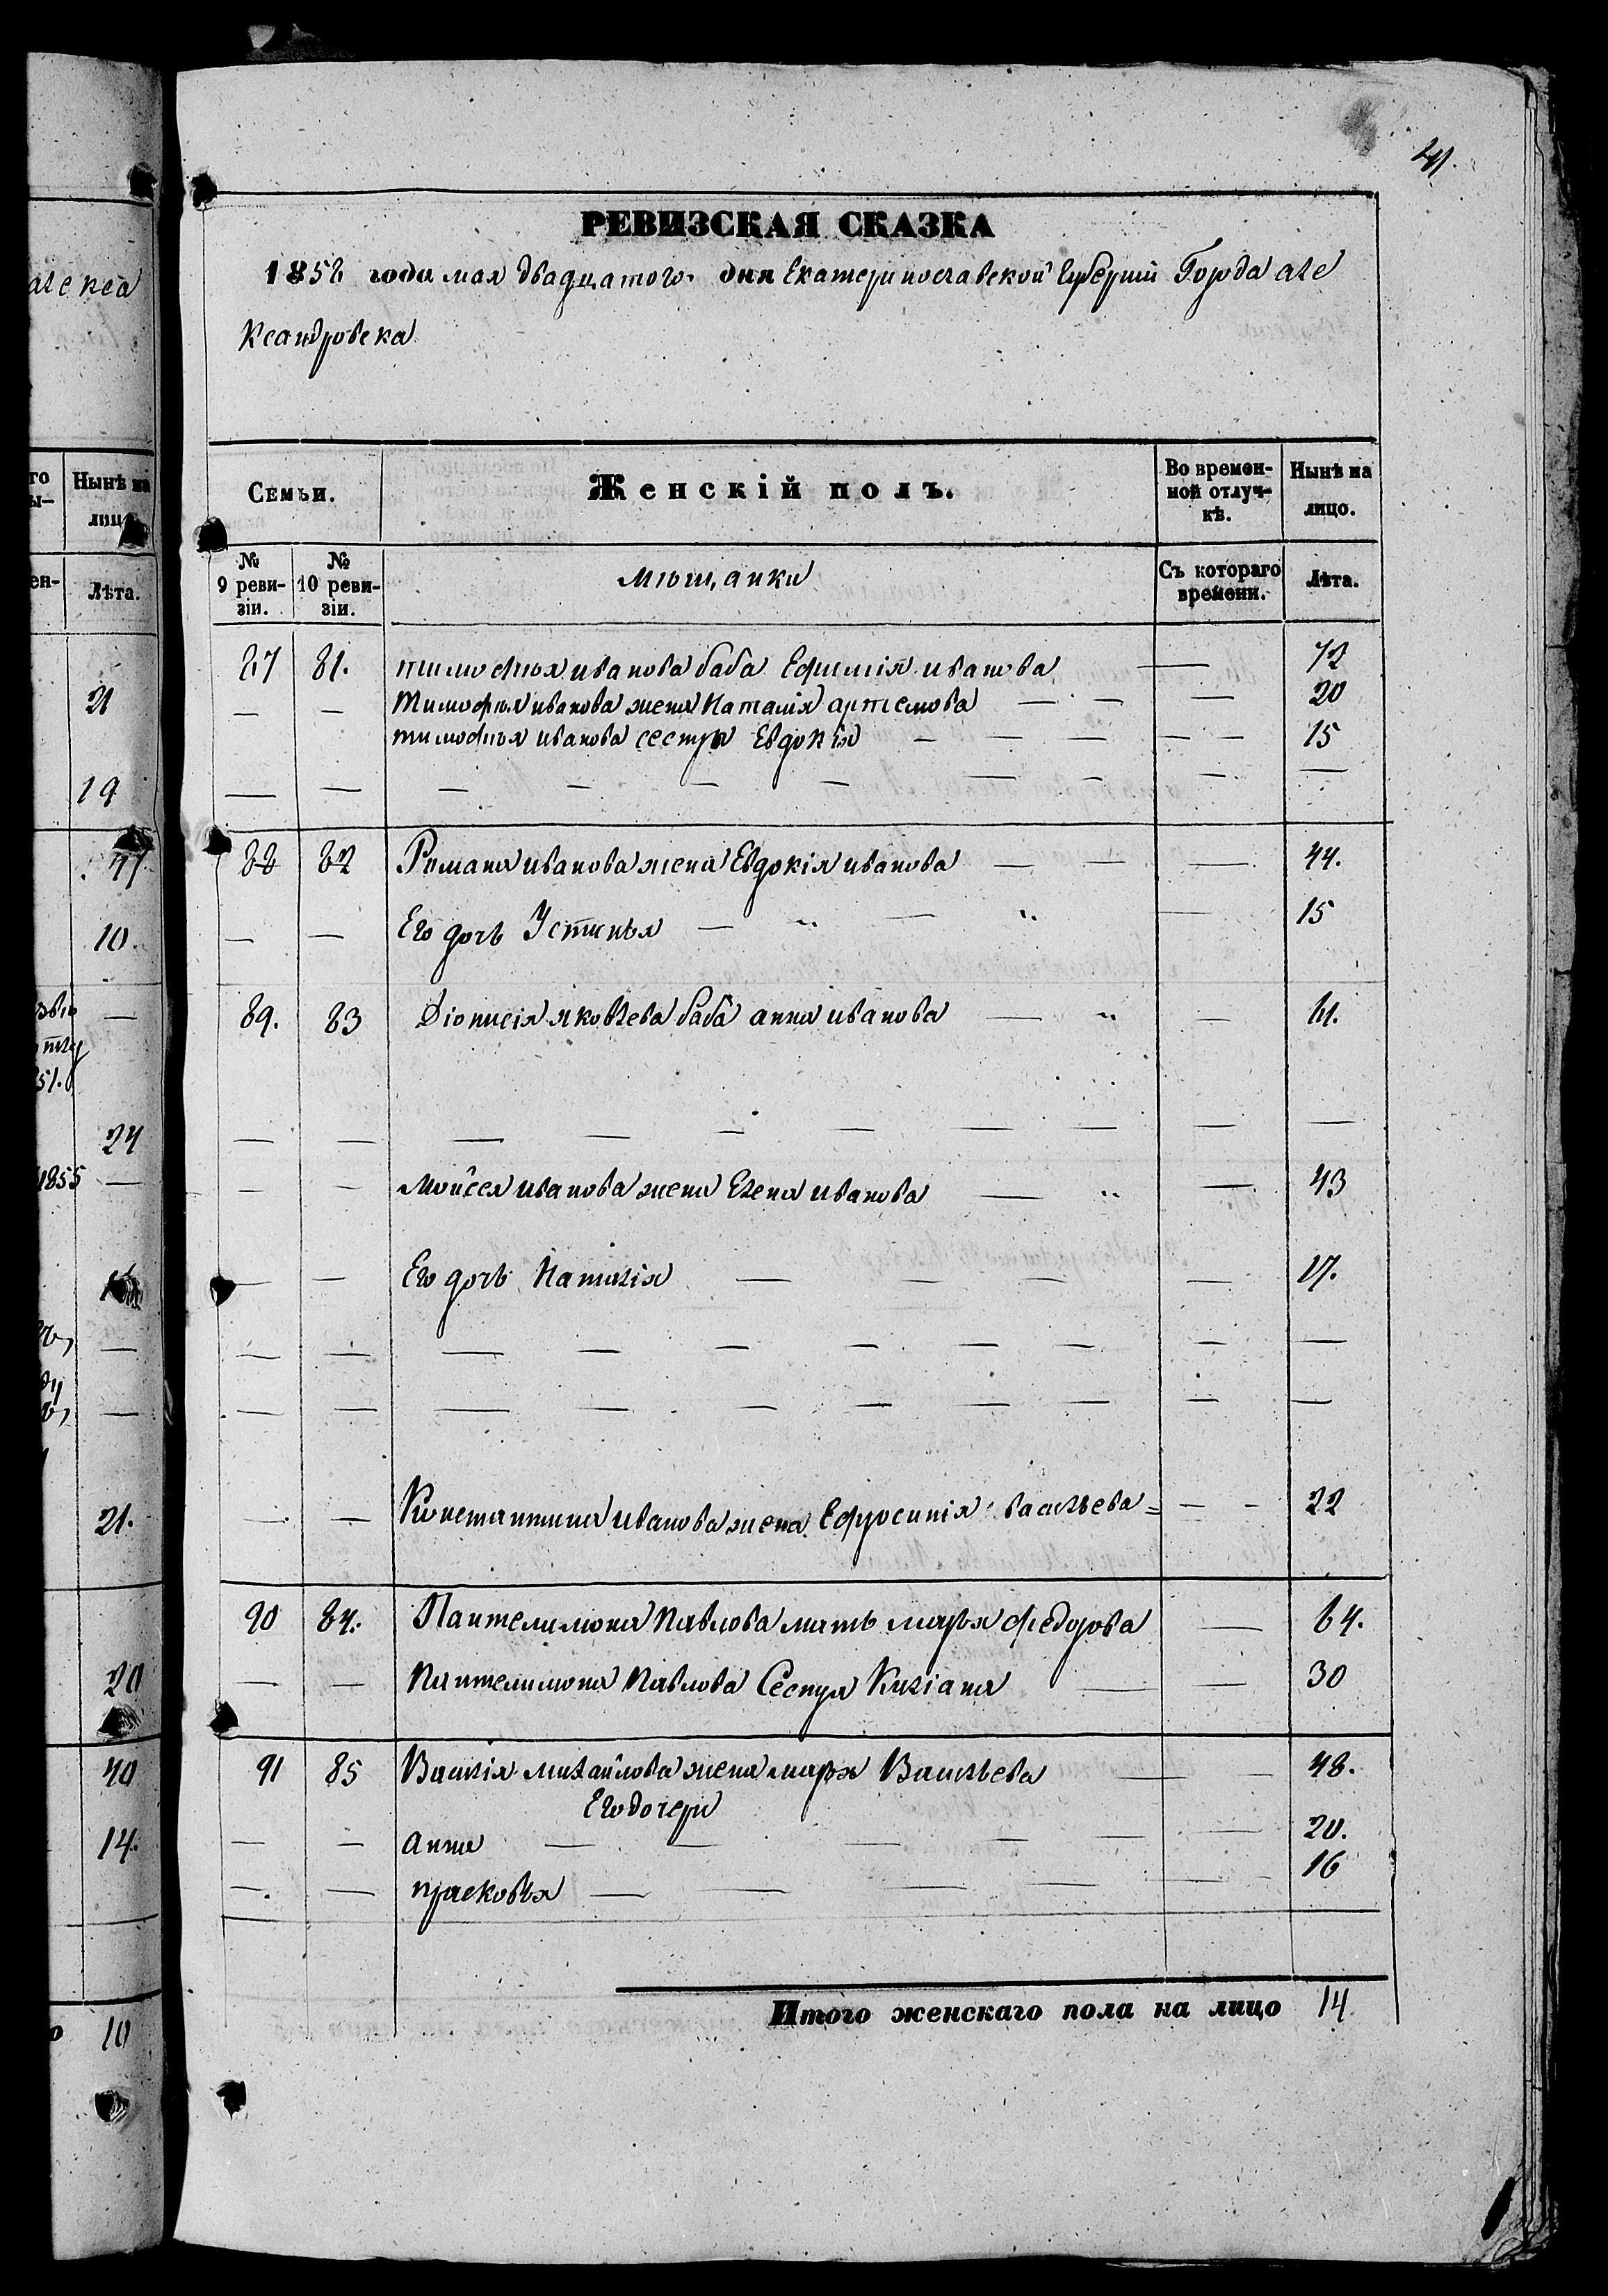 41.
РЕВИЗСКАЯ СКАЗКА
1858 года мая двадцатого дня Екатеринославской Губерніи Города але
ксандровска
алекса
Семьи.
Женскій полъ.
Во времен-
ной отлуч-
кѣ.
Нынѣ на
лицо.
№
9 реви-
зіи.
№
10 реви-
зіи.
мѣщанки
Съ котораго
времени.
Лѣта.
87 81. тимофѣя иванова баба Ефимія иванова — 72
— — Тимофѣя иванова жена Наталія артемова — — — 20
тимофѣя иванова сестра Евдокія — — — — — 15
— — — — — — — — — —
88 82 Романа иванова жена Евдокія иванова — — — 44.
— — Его дочь Устинья — „ — „ — 15
89. 83 Діонисія яковлева баба анна иванова — „ — 61.
— — — — — — — — — —
— — моисея иванова жена Елена иванова — „ — 43
— — Его дочь Наталія — — — — 17.
— — — — — — — — — —
— — — — — — — — — —
— — Константина иванова жена Ефросинія васильева = — - 22
90 84. Пантелимона Павлова мать марья федорова — 64.
— — Пантелимона Павлова Сестра Киліана — — 30
91 85 Василія михайлова жена марья Васильева — — 48.
Его дочери
— — анна — — — — — — 20.
— — прасковья — — — — — 16
Итого женскаго пола на лицо 14
Нынѣ на
лицо
Лѣта.
21
19
47
10.
—
51.
24
1855 —
—
—
21.
20
40
14.
10